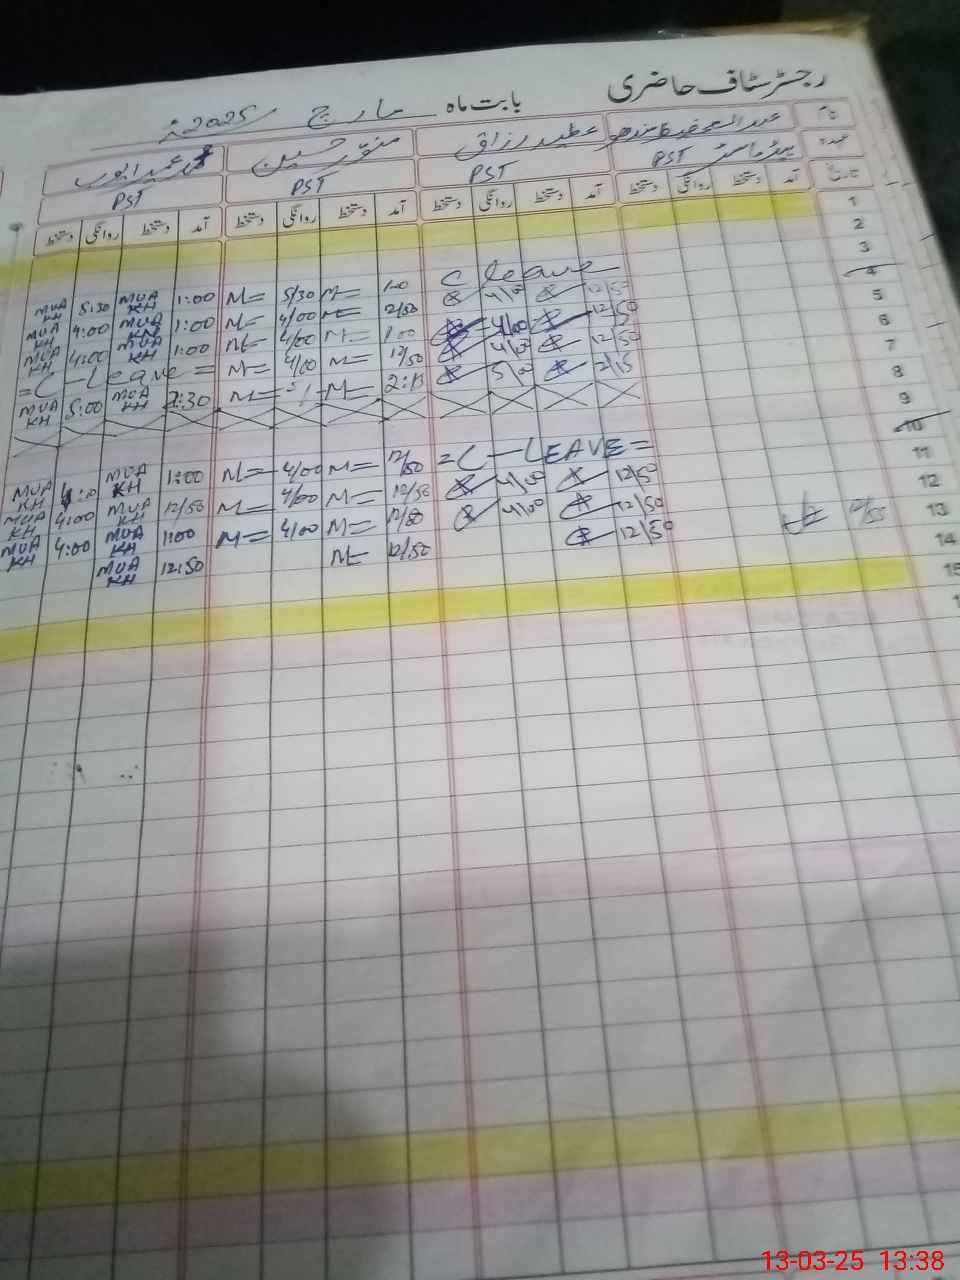 رجسٹر سٹاف حاضری بابت ماہ مارچ 2025ء
نام عطیہ رزاق منور حسین محمد عبید ایوب
عہدہ ہیڈ ماسٹر PST PST PST PST
تاریخ آمد دستخط روانگی دستخط آمد دستخط روانگی دستخط آمد دستخط روانگی دستخط آمد دستخط روانگی دستخط
1
2
3
4
5
6
7
8
9
10
11
12
13
14
15
C leave
MUA KH 5:30 MUA KH 1:00 M= 5/30 M= 1:00 4/00 12/50
MUA KH 4:00 MUA KH 1:00 M= 4/00 M= 12/50 4/00
MUA KH 4:00 MUA KH 1:00 M= 4/00 M= 1:00 4/00 12/50
=C-Leave= M= 4/00 M= 12/50 5/00 2/15
MUA KH 5:00 MUA KH 2:30 M= M= 2:15
MUA KH MUA KH 1:00 M= 4/00 M= 12/50 =C-LEAVE=
MUA KH 4:00 MUA KH 12/50 M= 4/00 M= 12/50 4/00 12/50
MUA KH 4:00 MUA KH 1:00 M= 4/00 M= 12/50 4/00 12/50
MUA KH 12:50 M= 12/50 12/50 12/55
13-03-25 13:38